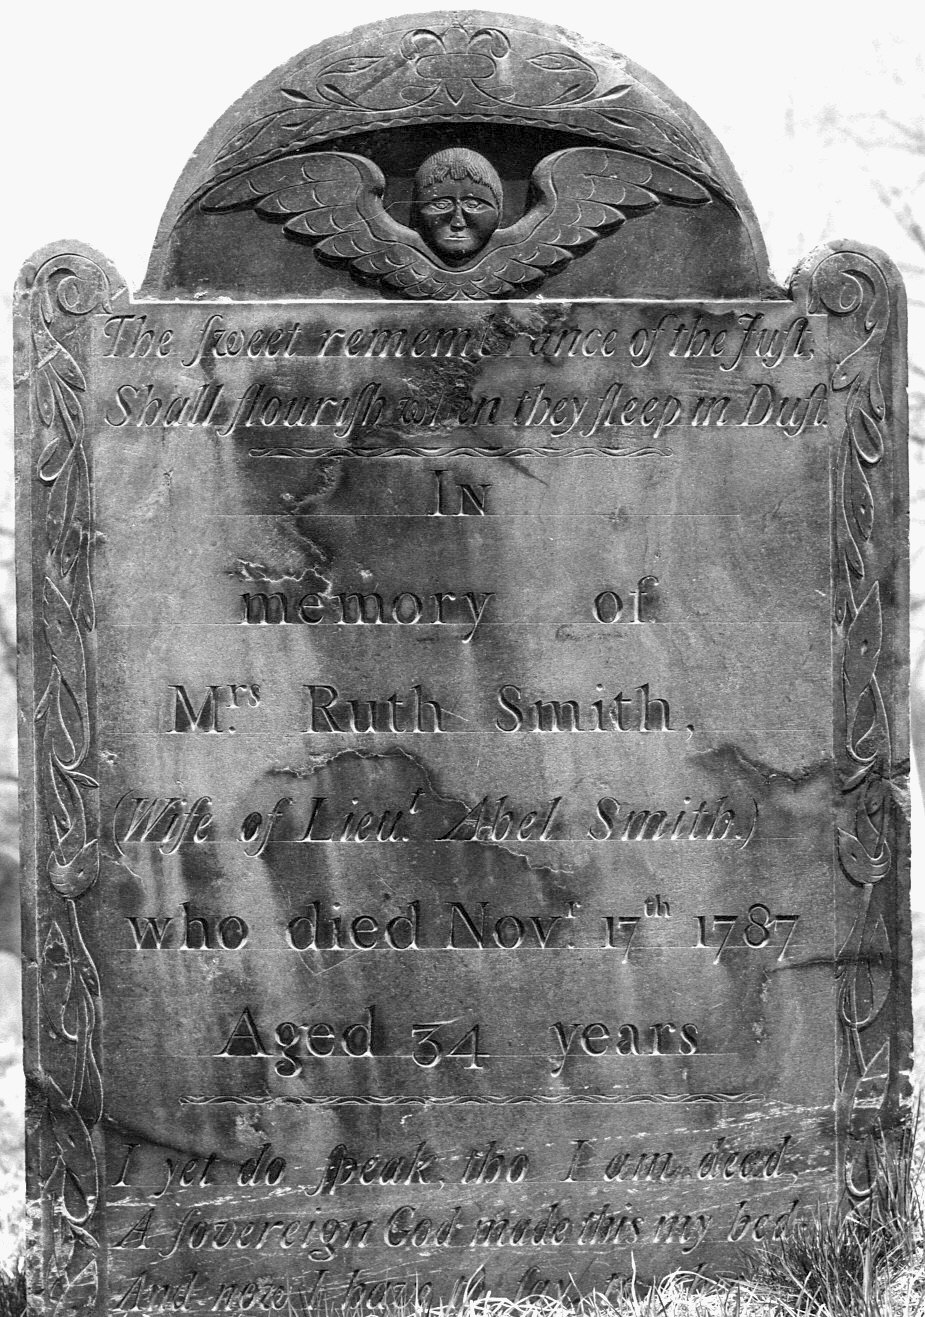 The ſweet remembrance of the Juſt,
Shall flouriſh when they ſleep in Duſt.
IN
memory of
Mrs. Ruth Smith,
(Wife of Lieut. Abel Smith)
who died Novr. 17th 1787
Aged 34 years
I yet do ſpeak, tho I am dead
A ſovereign God made this my bed
And now I have